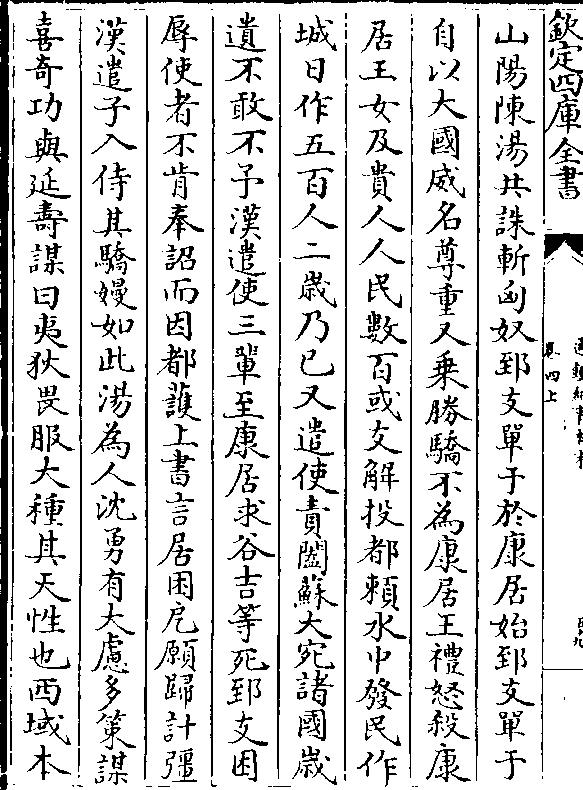 欽定四庫全書
卷四上
山陽陳湯共誅斬匈奴郅支單于於康居始郅支單于
自以大國威名尊重又乗勝驕不為康居王禮怒殺康
居王女及貴人人民數百或支解投都頼水中發民作
城日作五百人二歲乃已又遣使責闔蘇大宛諸國歲
遺不敢不予漢遣使三輩至康居求谷吉等死郅支困
辱使者不肯奉詔而因都䕶上書言居困戹願歸計彊
漢遣子入侍其驕嫚如此湯為人沈勇有大慮多策謀
喜奇功與延壽謀曰夷狄畏服大種其天性也西域本